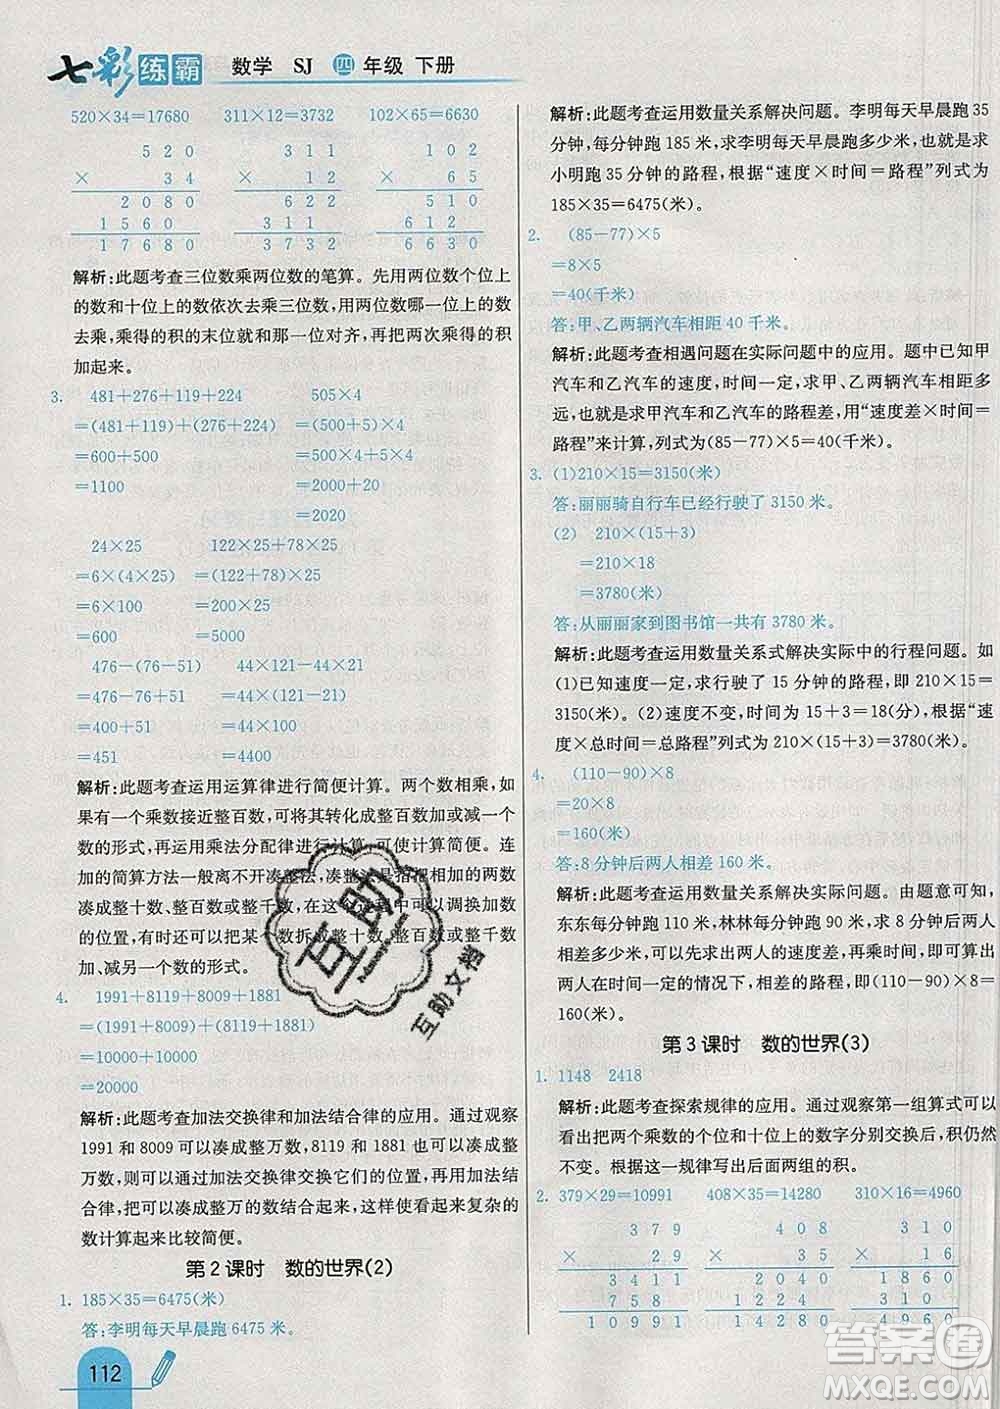 七彩练霸 数学 SJ 四年级 下册
520×34=17680 311×12=3732 102×65=6630
5 2 0   3 1 1   1 0 2
× 3 4   × 1 2   × 6 5
2 0 8 0   6 2 2   5 1 0
1 5 6 0   3 1 1   6 1 2
1 7 6 8 0   3 7 3 2   6 6 3 0
解析:此题考查三位数乘两位数的笔算。先用两位数个位上
的数和十位上的数依次去乘三位数,用两位数哪一位上的数
去乘,乘得的积的末位就和那一位对齐,再把两次乘得的积
加起来。
3. 481+276+119+224 505×4
=(481+119)+(276+224) =(500+5)×4
=600+500 =500×4+5×4
=1100 =2000+20
=2020
24×25 122×25+78×25
=6×(4×25) =(122+78)×25
=6×100 =200×25
=600 =5000
476-(76-51) 44×121-44×21
=476-76+51 =44×(121-21)
=400+51 =44×100
=451 =4400
解析:此题考查运用运算律进行简便计算。两个数相乘,如
果有一个乘数接近整百数,可将其转化成整百数加或减一个
数的形式,再运用乘法分配律进行计算,可使计算简便。连
加的简算方法一般离不开凑整法,凑整法是指把相加的数
凑成整十数、整百数或整千数,在这个过程中可以调换加数
的位置,也可以根据需要把某个数拆成整十数、整百数或整千数
加、减另一个数的形式。
4. 1991+8119+8009+1881
=(1991+8009)+(8119+1881)
=10000+10000
=20000
解析:此题考查加法交换律和加法结合律的应用。通过观察
1991 和 8009 可以凑成整万数,8119 和 1881 可以凑成整万
数,则可以通过加法交换律交换它们的位置,再用加法结
合律,凑成整万的数来进行简便计算,使看起来很复杂的
数计算起来比较简便。
第 2 课时 数的世界(2)
1. 185×35=6475(米)
答:李明每天早晨跑 6475 米。
112
解析:此题考查运用数量关系解决问题。李明每天早晨跑 35
分钟,每分钟跑 185 米,求李明每天早晨跑多少米,也就是求
小明跑 35 分钟的路程,根据“速度×时间=路程”列式为
185×35=6475(米)。
2. (85-77)×5
=8×5
=40(千米)
答:甲、乙两辆汽车相距 40 千米。
解析:此题考查相遇问题在实际问题中的应用。题中已知甲
汽车和乙汽车的速度,时间一定,求甲、乙两辆汽车相距多
远,也就是求甲汽车和乙汽车的路程差,用“速度差×时间=
路程”来计算,列式为(85-77)×5=40(千米)。
3. (1)210×15=3150(米)
答:丽丽骑自行车已经行驶了 3150 米。
(2) 210×(15+3)
=210×18
=3780(米)
答:从丽丽家到图书馆一共有 3780 米。
解析:此题考查运用数量关系式解决实际中的行程问题。如
(1)已知速度一定,求行驶了 15 分钟的路程,即 210×15=
3150(米)。(2)速度不变,时间为 15+3=18(分),根据“速
度×总时间=总路程”列式为 210×(15+3)=3780(米)。
4. (110-90)×8
=20×8
=160(米)
答:8 分钟后两人相差 160 米。
解析:此题考查运用数量关系解决实际问题。由题意可知,
东东每分钟跑 110 米,林林每分钟跑 90 米,求 8 分钟后两人
相差多少米,可以先求出两人的速度差,再乘时间,即可求出
两人在时间一定的情况下,相差的距离,即(110-90)×8=
160(米)。
第 3 课时 数的世界(3)
1. 1148 2418
解析:此题考查探索规律的应用。通过观察第一组算式可以
看出把两个乘数的个位和十位上的数字分别交换后,积仍然
不变。根据这一规律写出后面两组的积。
2. 379×29=10991 408×35=14280 310×16=4960
3 7 9   4 0 8   3 1 0
× 2 9   × 3 5   × 1 6
3 4 1 1   2 0 4 0   1 8 6 0
7 5 8   1 2 2 4   3 1 0
1 0 9 9 1   1 4 2 8 0   4 9 6 0
互助
互助文档
答案圈
MXQE.COM